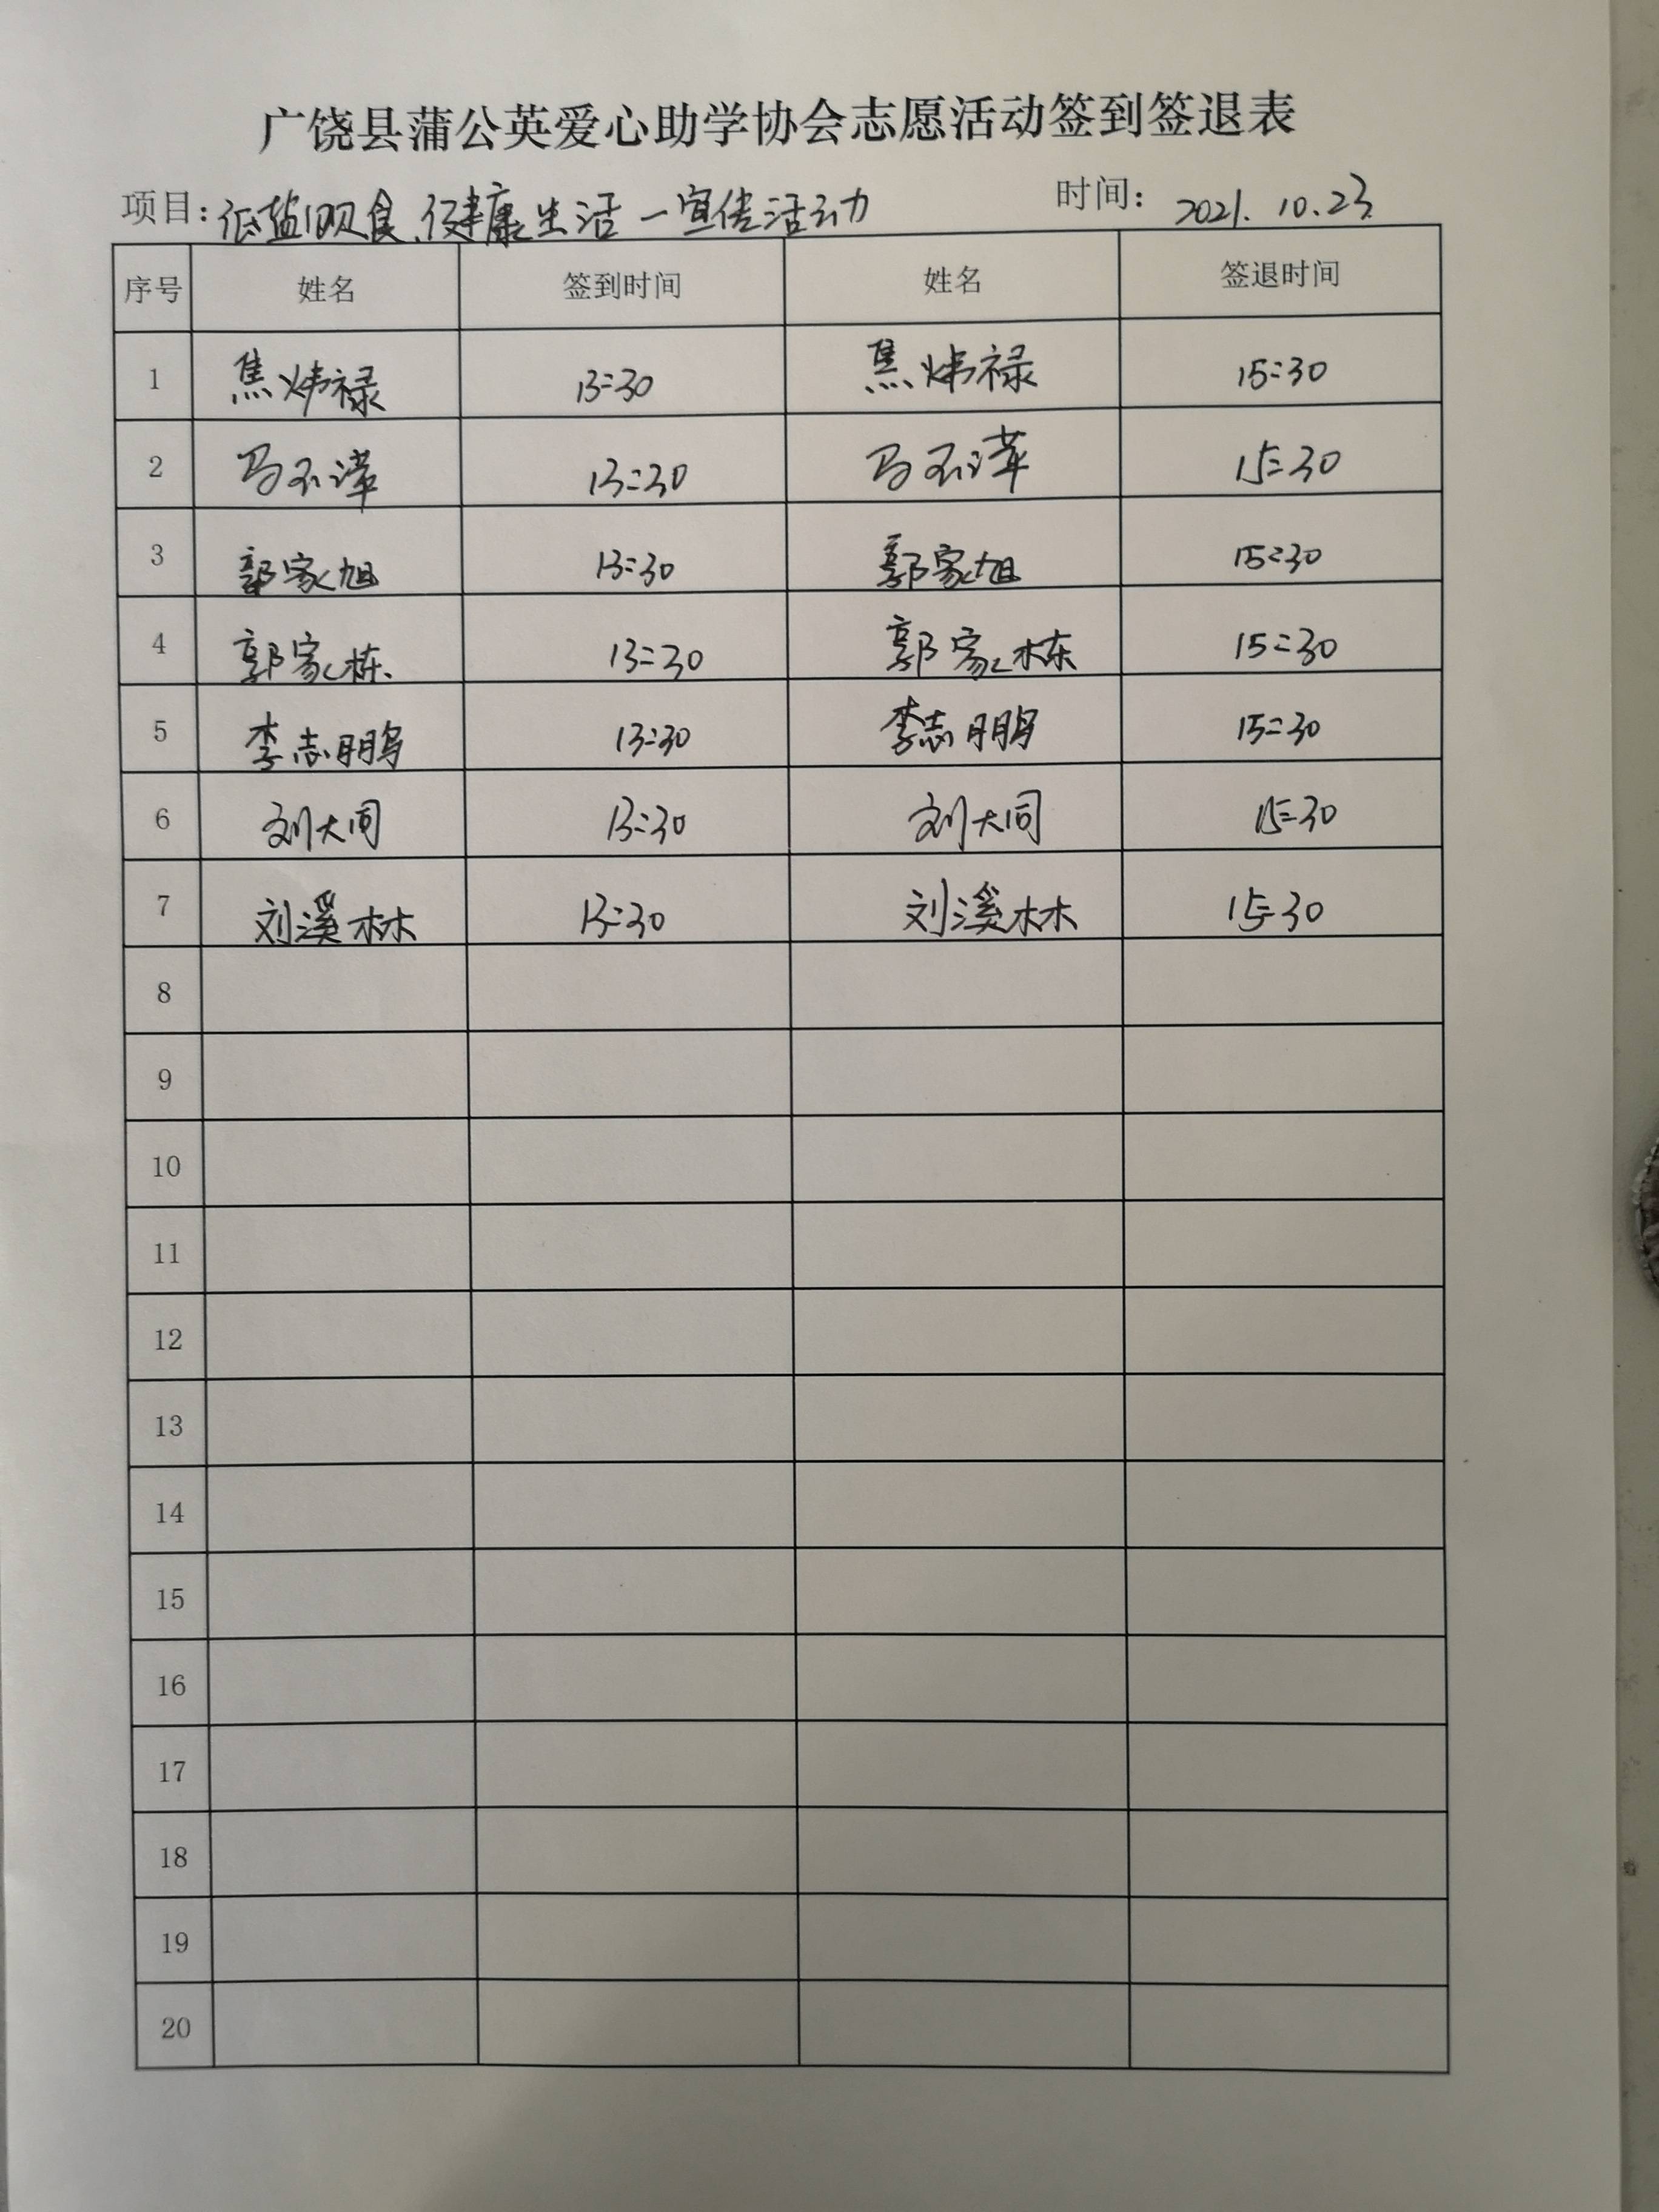 广饶县蒲公英爱心助学协会志愿活动签到签退表
项目：低盐饮食、健康生活—宣传活动 时间：2021.10.23
序号 姓名 签到时间 姓名 签退时间
1 焦炜禄 13:30 焦炜禄 15:30
2 马 13:30 马 15:30
3 郭家旭 13:30 郭家旭 15:30
4 郭家栋 13:30 郭家栋 15:30
5 李志鹏 13:30 李志鹏 15:30
6 刘大同 13:30 刘大同 15:30
7 刘溪林 13:30 刘溪林 15:30
8
9
10
11
12
13
14
15
16
17
18
19
20